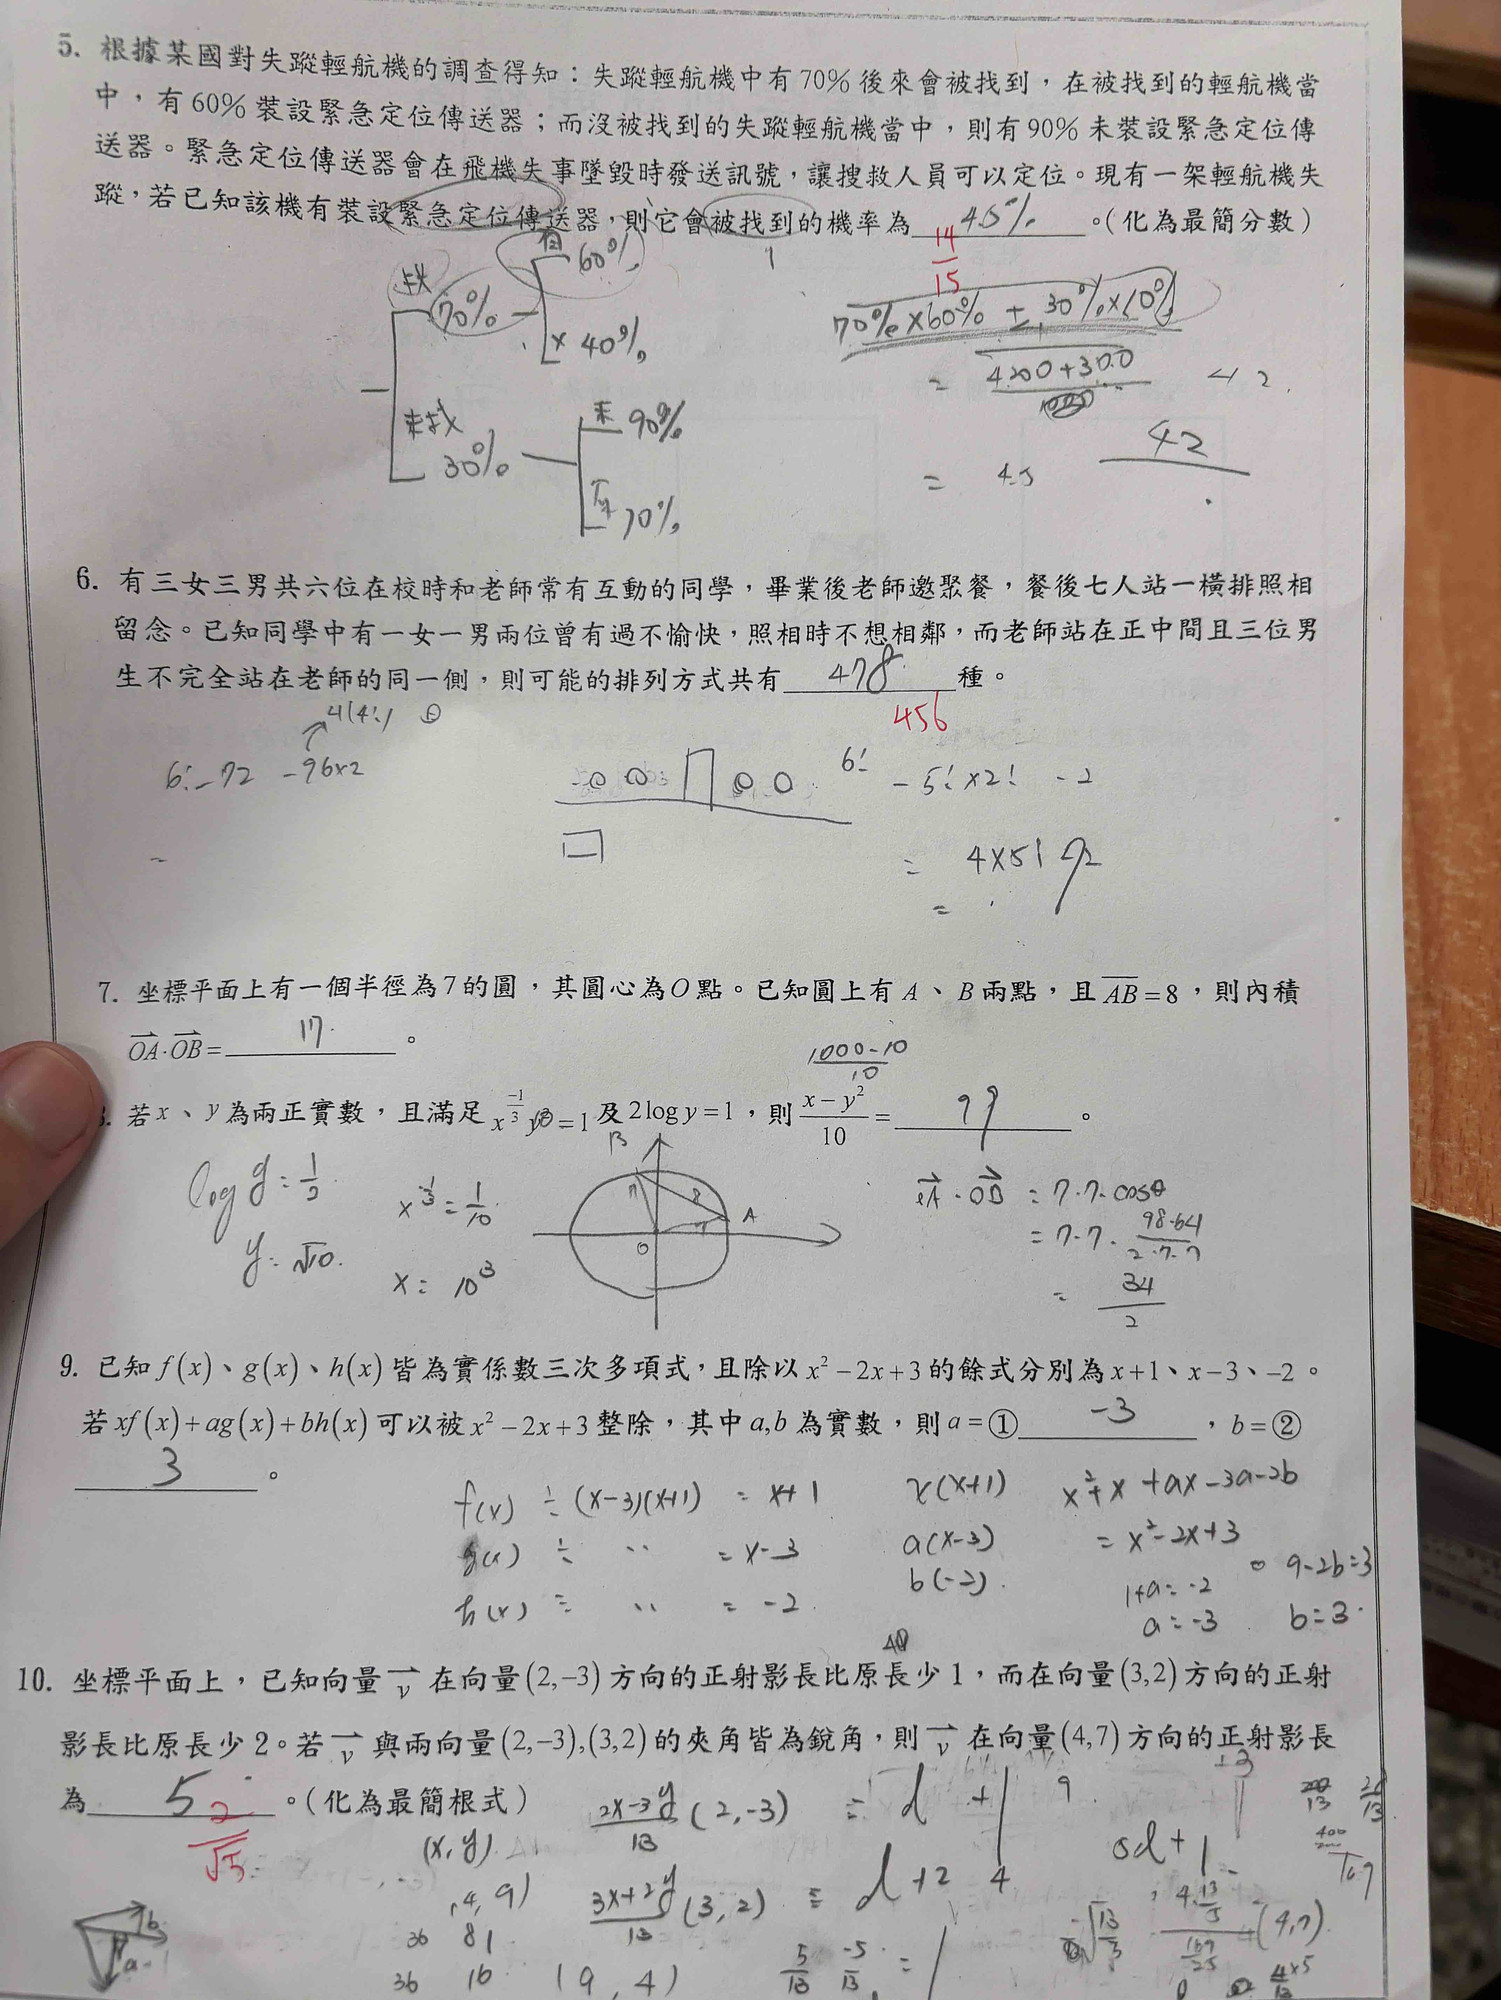 5. 根據某國對失蹤輕航機的調查得知：失蹤輕航機中有70%後來會被找到，在被找到的輕航機當
中，有60%裝設緊急定位傳送器；而沒被找到的失蹤輕航機當中，則有90%未裝設緊急定位傳
送器。緊急定位傳送器會在飛機失事墜毀時發送訊號，讓搜救人員可以定位。現有一架輕航機失
蹤，若已知該機有裝設緊急定位傳送器，則它會被找到的機率為 45% 。(化為最簡分數)
14/15
找 70% 有 60%
× 40%
未找 30% 未 90%
10%
70%×60% + 30%×10%
= 4200+300
= 45
42
6. 有三女三男共六位在校時和老師常有互動的同學，畢業後老師邀聚餐，餐後七人站一橫排照相
留念。已知同學中有一女一男兩位曾有過不愉快，照相時不想相鄰，而老師站在正中間且三位男
生不完全站在老師的同一側，則可能的排列方式共有 478 種。
456
4(4!)
6!-72 -96×2
6! -5!×2! -2
= 4×5!
7. 坐標平面上有一個半徑為7的圓，其圓心為O點。已知圓上有A、B兩點，且AB=8，則內積
OA·OB= 17 。
1000-10/10
若x、y為兩正實數，且滿足x^(-1/3)y²=1及2log y=1，則(x-y²)/10= 99 。
log y=1/2
y=√10.
x^(-1/3)=1/10
x=10³
B
A
O
OA·OB = 7·7·cosθ
= 7·7· (98-64)/(2·7·7)
= 34/2
9. 已知f(x)、g(x)、h(x)皆為實係數三次多項式，且除以x²-2x+3的餘式分別為x+1、x-3、-2。
若xf(x)+ag(x)+bh(x)可以被x²-2x+3整除，其中a,b為實數，則a=① -3 ，b=②
3 。
f(x) ÷(x-3)(x+1) = x+1
g(x) ÷ 〃 = x-3
h(x) ÷ 〃 = -2
x(x+1)
a(x-3)
b(-2)
x²+x+ax-3a-2b
= x²-2x+3
1+a=-2
a=-3
9-2b=3
b=3
10. 坐標平面上，已知向量v在向量(2,-3)方向的正射影長比原長少1，而在向量(3,2)方向的正射
影長比原長少2。若v與兩向量(2,-3),(3,2)的夾角皆為銳角，則v在向量(4,7)方向的正射影長
為 5 。(化為最簡根式)
2/√5
(x,y)
(2x-3y)/13 (2,-3) = d+1
(3x+2y)/13 (3,2) = d+2
36 81
36 16
(9,4)
(4,7)